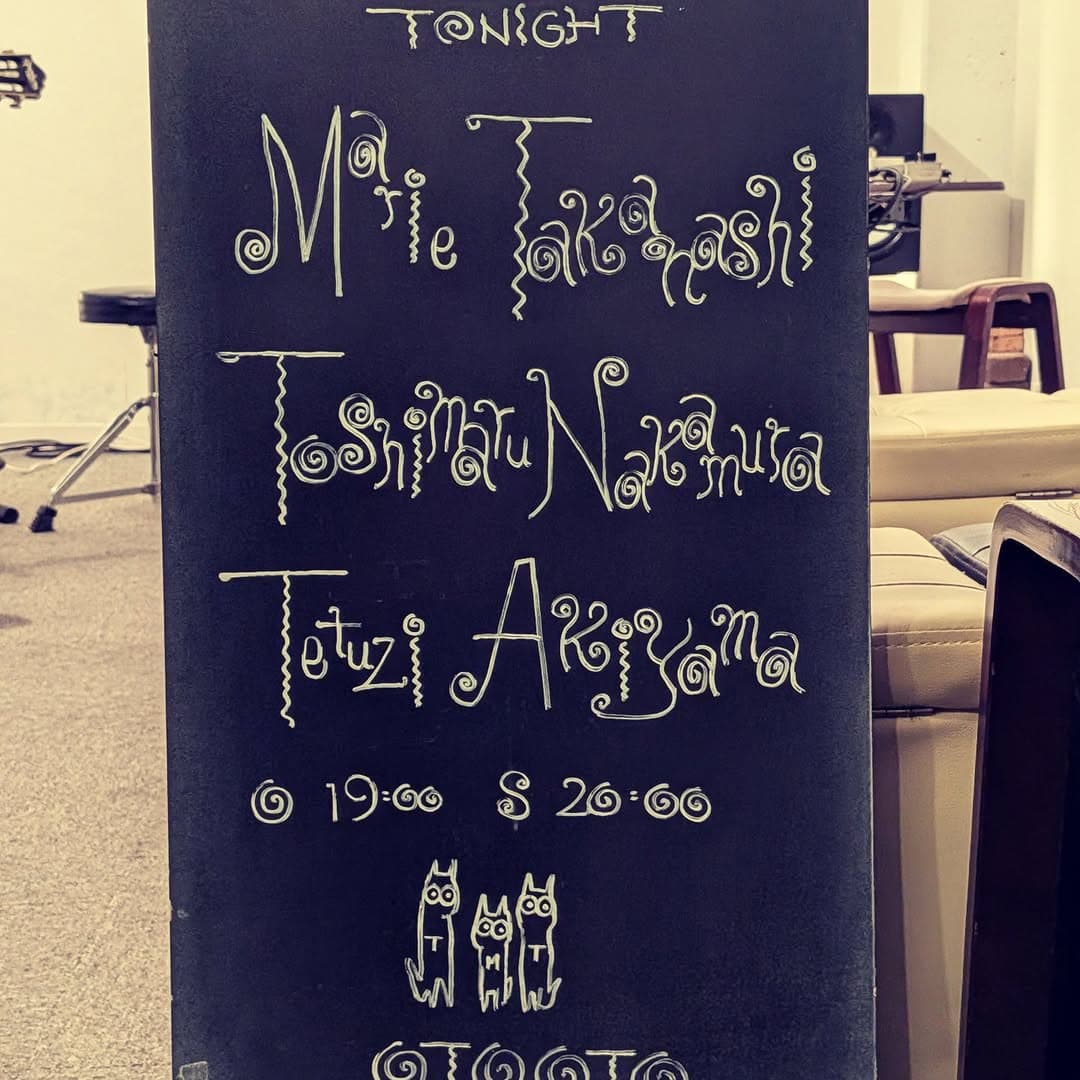 TONIGHT
Marie Takahashi
Toshimaru Nakamura
Tetuzi Akiyama
O 19:00 S 20:00
T M T
OTOOTO